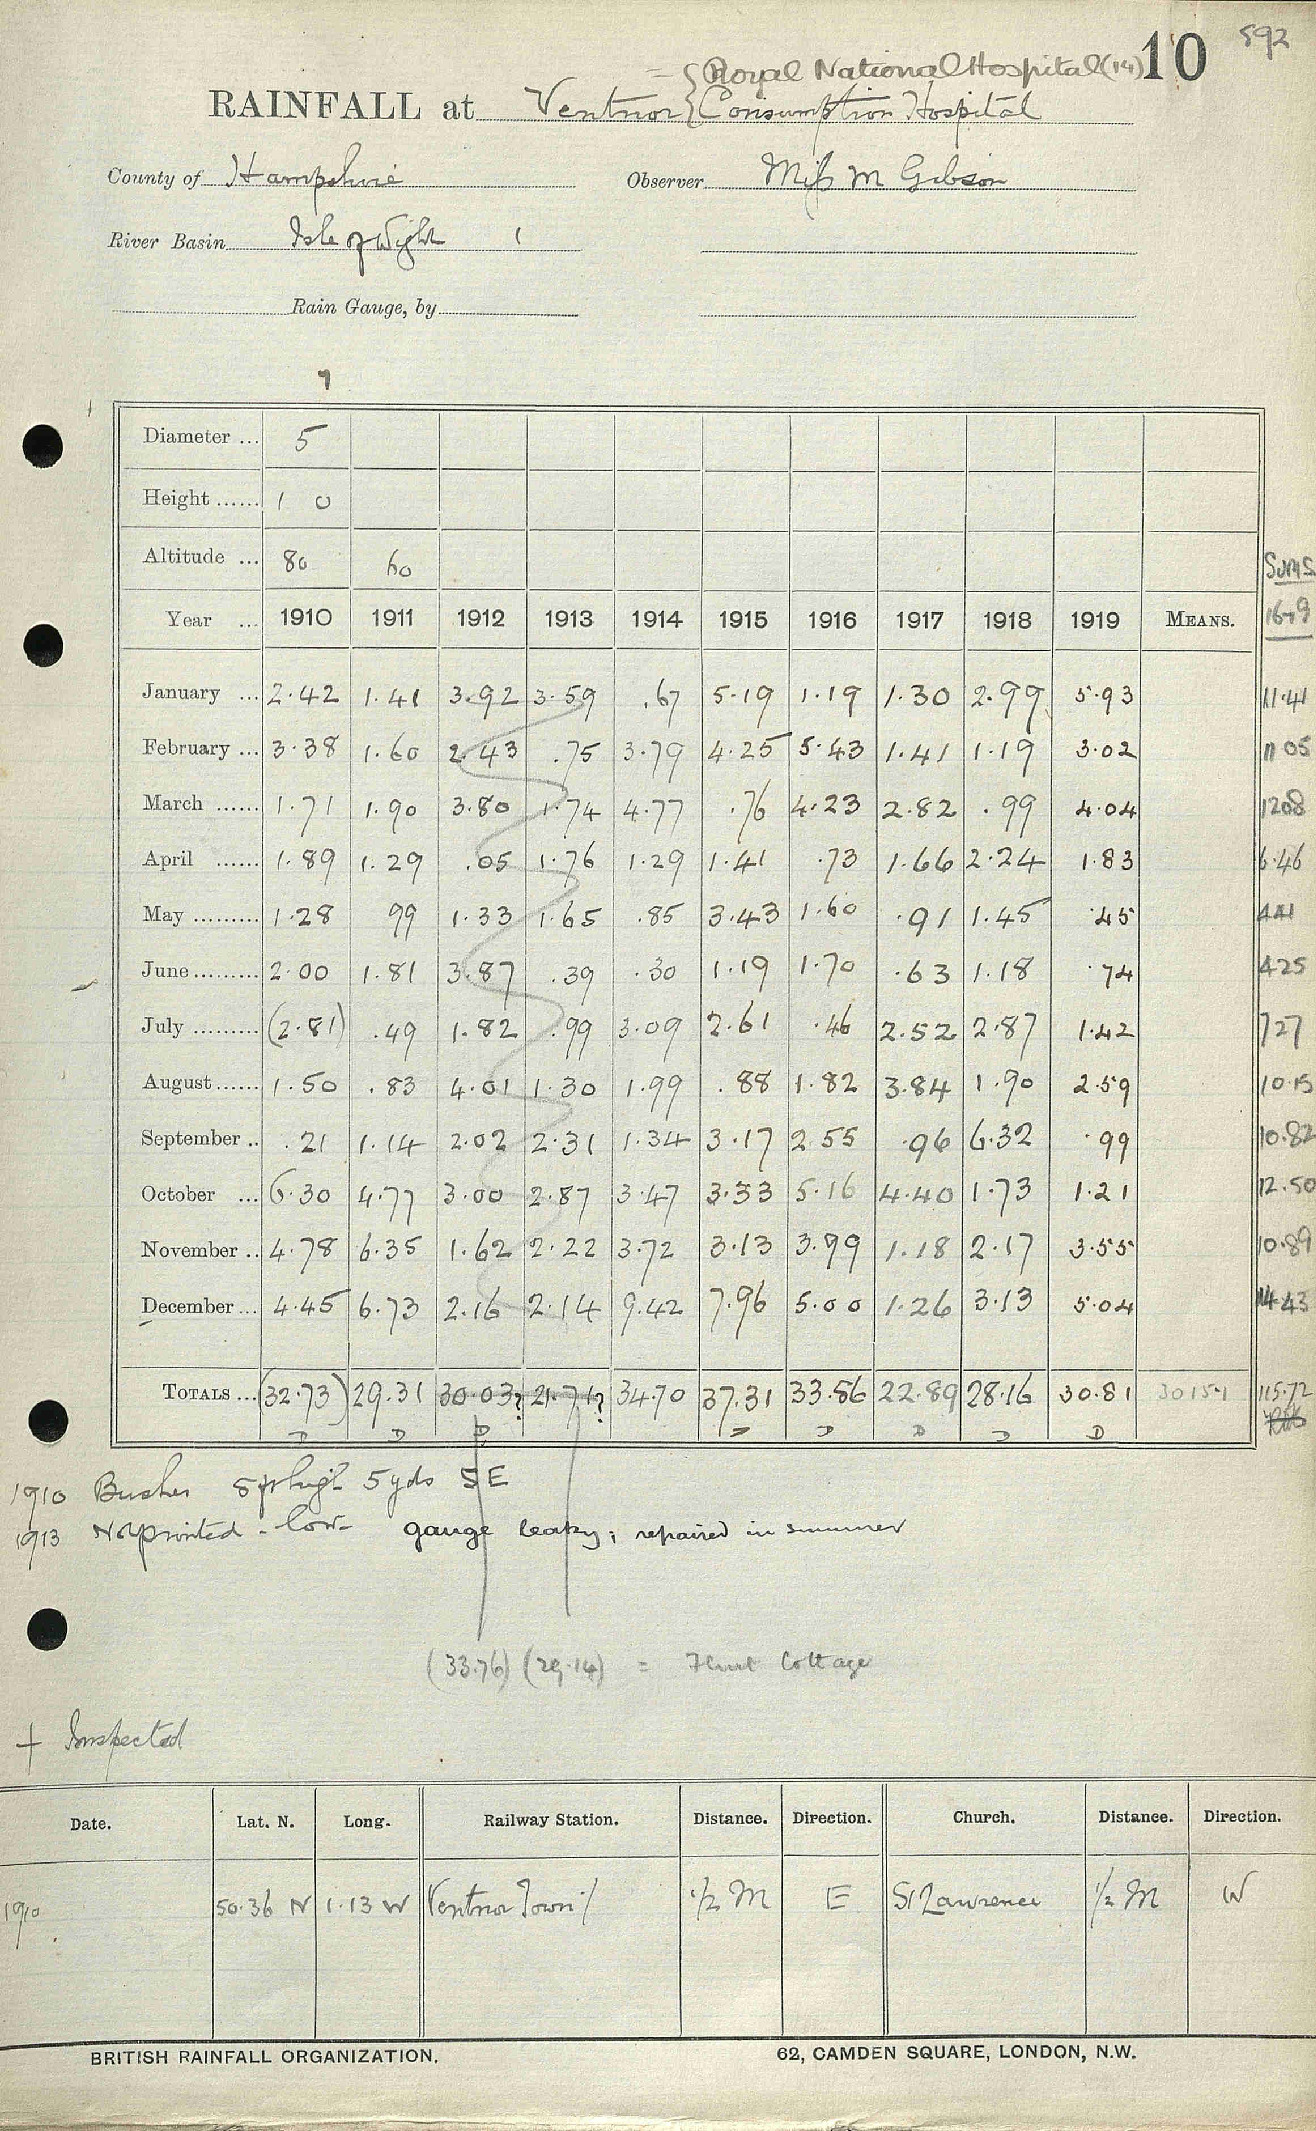 592
= { Royal National Hospital (14) 10
RAINFALL at Ventnor { Consumption Hospital
County of Hampshire Observer Miss M Gibson
River Basin Isle of Wight 1
Rain Gauge, by
Diameter ... 5
Height ...... 1 0
Altitude ... 80 60 Sums
Year ... 1910 1911 1912 1913 1914 1915 1916 1917 1918 1919 MEANS. 16-19
January ... 2.42 1.41 3.92 3.59 .67 5.19 1.19 1.30 2.99 5.93 11.41
February ... 3.38 1.60 2.43 .75 3.79 4.25 5.43 1.41 1.19 3.02 11 05
March ...... 1.71 1.90 3.80 1.74 4.77 .76 4.23 2.82 .99 4.04 1208
April ...... 1.89 1.29 .05 1.76 1.29 1.41 .73 1.66 2.24 1.83 6.46
May ......... 1.28 99 1.33 1.65 .85 3.43 1.60 .91 1.45 .45 441
June ......... 2.00 1.81 3.87 .39 .30 1.19 1.70 .63 1.18 .74 425
July ......... (2.81) .49 1.82 .99 3.09 2.61 .46 2.52 2.87 1.42 727
August ...... 1.50 .83 4.01 1.30 1.99 .88 1.82 3.84 1.90 2.59 10.15
September .. .21 1.14 2.02 2.31 1.34 3.17 2.55 .96 6.32 .99 10.82
October ... 6.30 4.77 3.00 2.87 3.47 3.33 5.16 4.40 1.73 1.21 12.50
November .. 4.78 6.35 1.62 2.22 3.72 3.13 3.99 1.18 2.17 3.55 10.89
December ... 4.45 6.73 2.16 2.14 9.42 7.96 5.00 1.26 3.13 5.04 14.43
TOTALS ... (32.73) 29.31 30.03? 21.71? 34.70 37.31 33.86 22.89 28.16 30.81 115.72
D D D D D D D D
1910 Bushes 8ft high 5yds SE
1913 Not printed - low - gauge leaky; repaired in summer
(33.76) (29.14) = Flint Cottage
+ Inspected
Date. Lat. N. Long. Railway Station. Distance. Direction. Church. Distance. Direction.
1910 50.36 N 1.13 W Ventnor Town / 1/2 M E St Lawrence 1/2 M W
BRITISH RAINFALL ORGANIZATION. 62, CAMDEN SQUARE, LONDON, N.W.